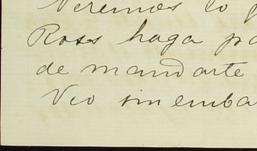 Veremos lo
Ross haga pa
de mandarte
Veo sin emba